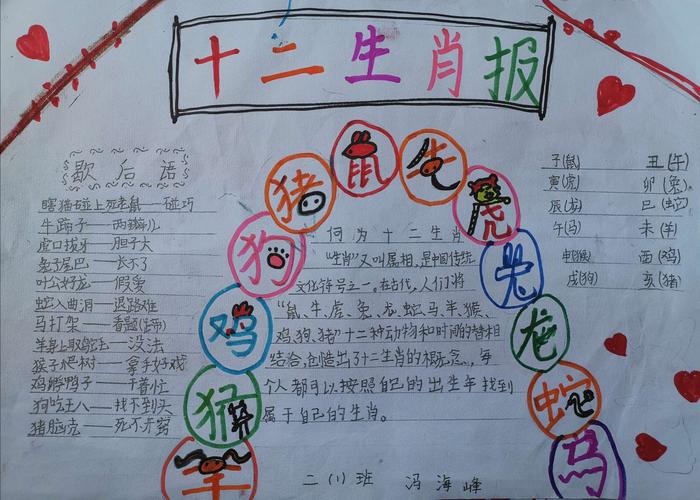 十二生肖报
歇后语
瞎猫碰上死老鼠——碰巧
牛蹄子——两瓣儿
虎口拔牙——胆子大
兔子尾巴——长不了
叶公好龙——假爱
蛇入曲洞——退路难
马打架——看题(蹄)
羊身上取鸵毛——没法
猴子爬树——拿手好戏
鸡孵鸭子——干着忙
狗吃王八——找不到头
猪脑壳——死不开窍
鼠
牛
虎
兔
龙
蛇
马
羊
猴
鸡
狗
猪
何为十二生肖
"生肖"又叫属相,是中国传统
文化符号之一。在古代,人们将
"鼠、牛、虎、兔、龙、蛇、马、羊、猴、
鸡、狗、猪"十二种动物和时间的替相
结合,创造出了十二生肖的概念。每
个人都可以按照自己的出生年找到
属于自己的生肖。
子(鼠) 丑(牛)
寅(虎) 卯(兔)
辰(龙) 巳(蛇)
午(马) 未(羊)
申(猴) 酉(鸡)
戌(狗) 亥(猪)
二(1)班 冯海峰